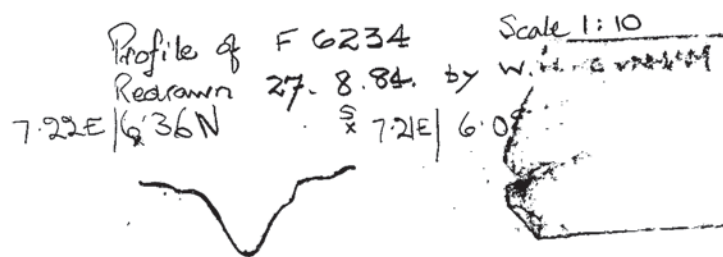 Profile of F 6234 Scale 1:10
Redrawn 27. 8. 84. by W.
7.22E | 6.36N S x 7.21E | 6.0